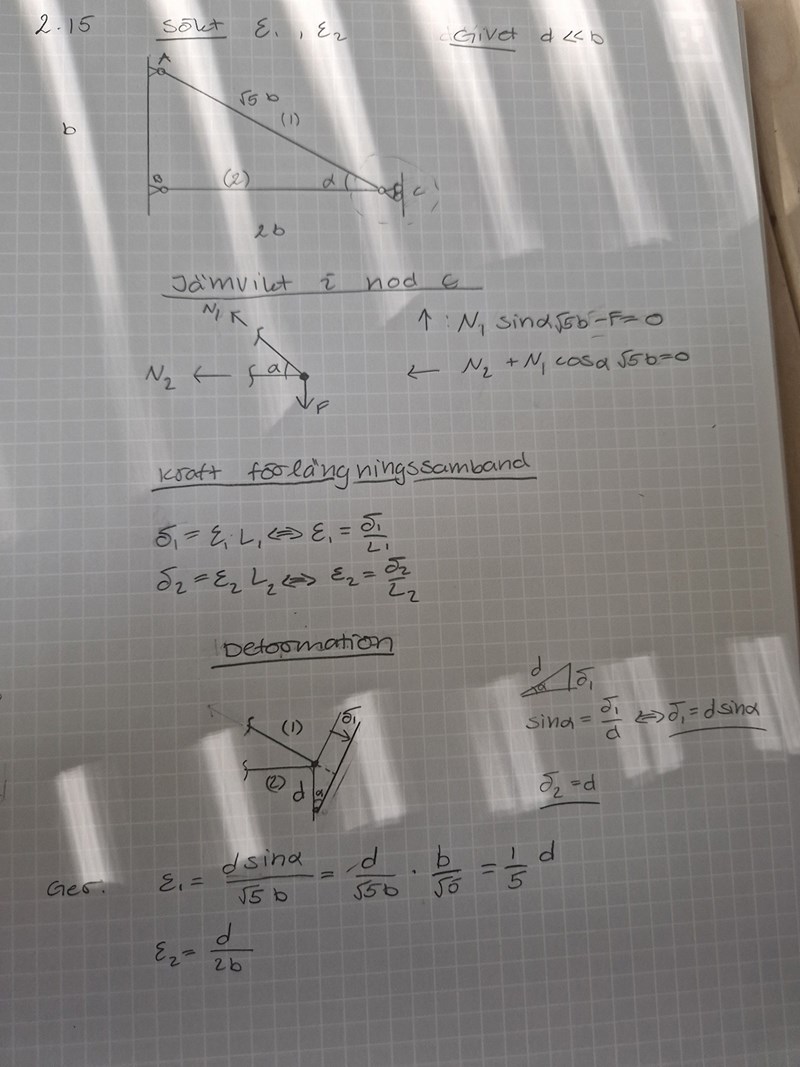 2.15 Sökt ε₁, ε₂ Givet d << b
A
√5 b
(1)
b
B (2) α C
2b
Jämvikt i nod C
N₁ ↑ : N₁ sinα √5b - F = 0
N₂ ← α ← N₂ + N₁ cosα √5b = 0
F
Kraft förlängningssamband
δ₁ = ε₁ L₁ ⇔ ε₁ = δ₁/L₁
δ₂ = ε₂ L₂ ⇔ ε₂ = δ₂/L₂
Deformation
d δ₁
α
(1) δ₁ sinα = δ₁/d ⇔ δ₁ = d sinα
(2) d α δ₂ = d
Ger. ε₁ = d sinα/√5 b = d/√5b · b/√5 = 1/5 d
ε₂ = d/2b